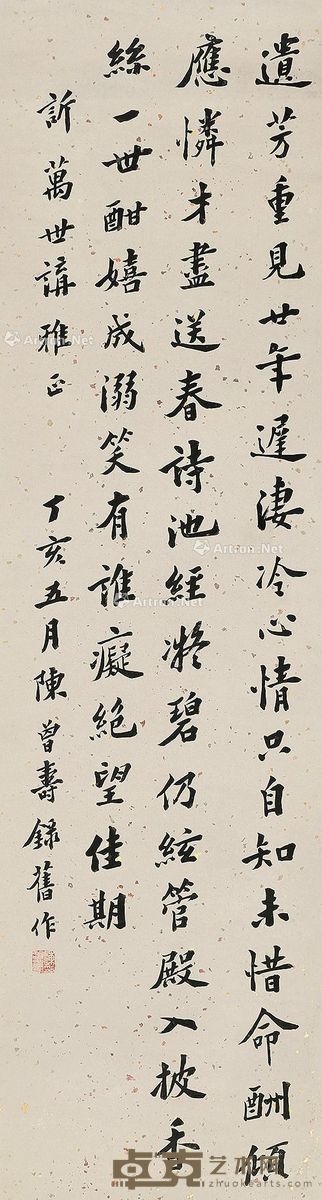 遺芳重見廿年遲淒冷心情只自知未惜命酬傾
應憐才盡送春詩池經凝碧仍絃管殿入披香
絲一世酣嬉成溺笑有誰癡絕望佳期
訢萬世講雅正 丁亥五月陳曾壽錄舊作
Artron.Net
卓克艺术网
www.zhuokearts.com